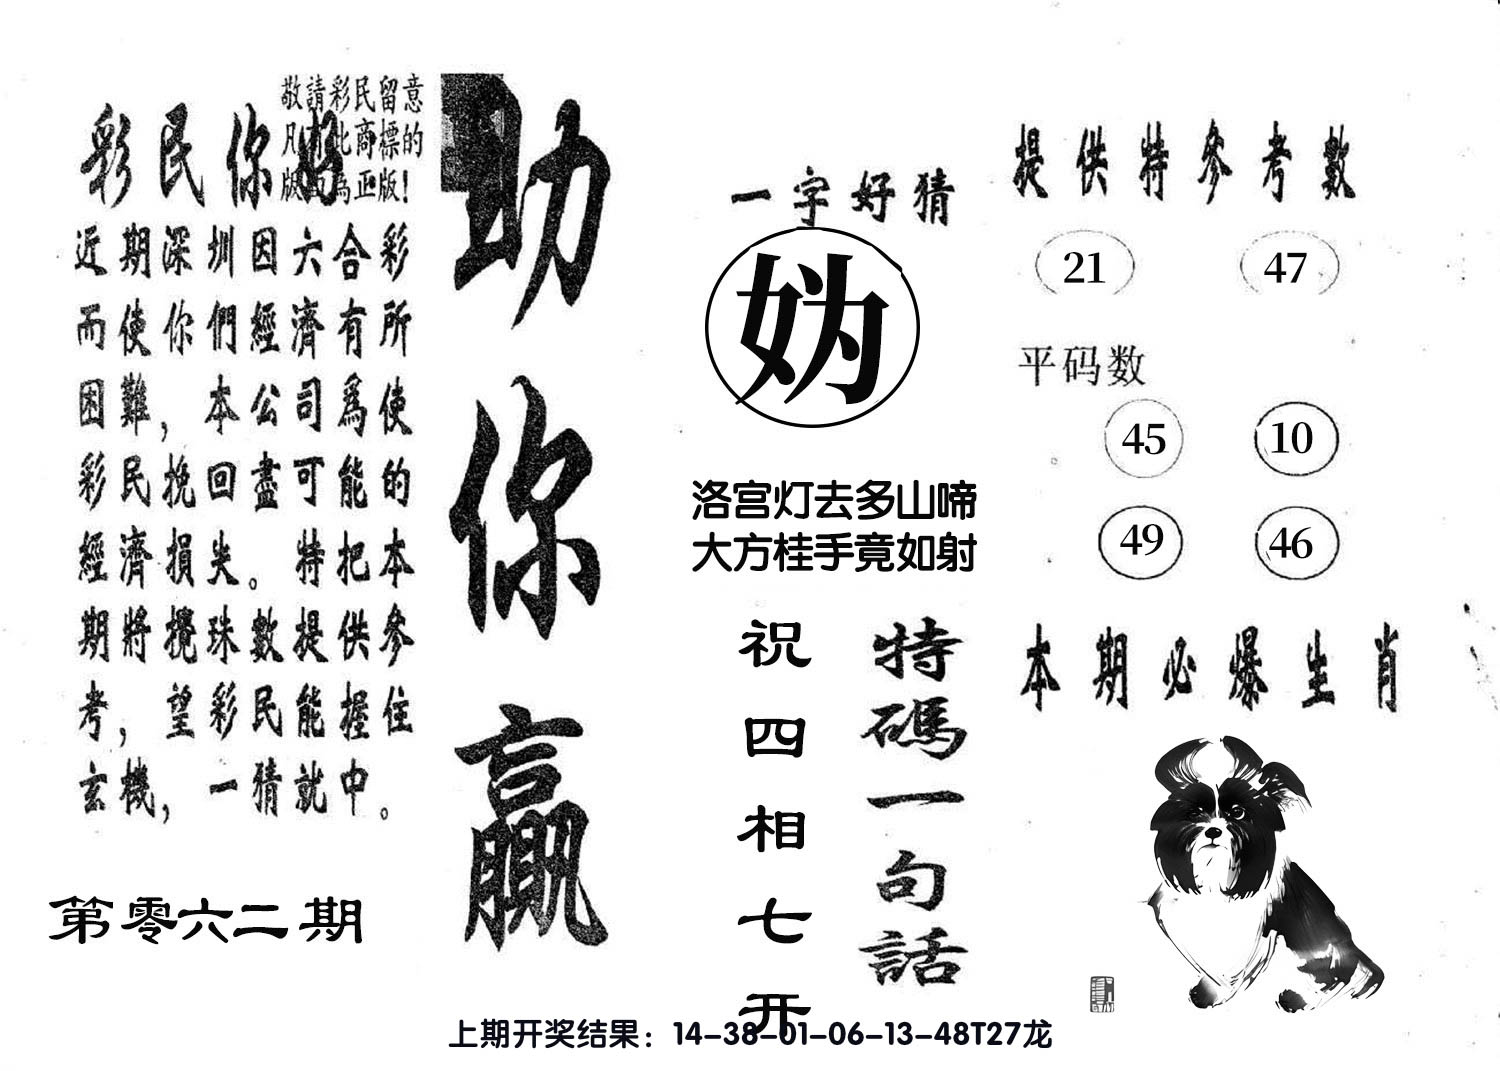 敬請彩民留意
凡有此商標的
版面為正版!
彩民你好
近期深圳因六合彩
而使你們經濟有所
困難，本公司爲使
彩民挽回盡可能的
經濟損失。特把本
期將攪珠數提供參
考，望彩民能握住
玄機，一猜就中。
第零六二期
助你贏
一字好猜
妫
洛宫灯去多山啼
大方桂手竟如射
特碼一句話
祝四相七开
提供特參考數
21 47
平码数
45 10
49 46
本期必爆生肖
上期开奖结果：14-38-01-06-13-48T27龙